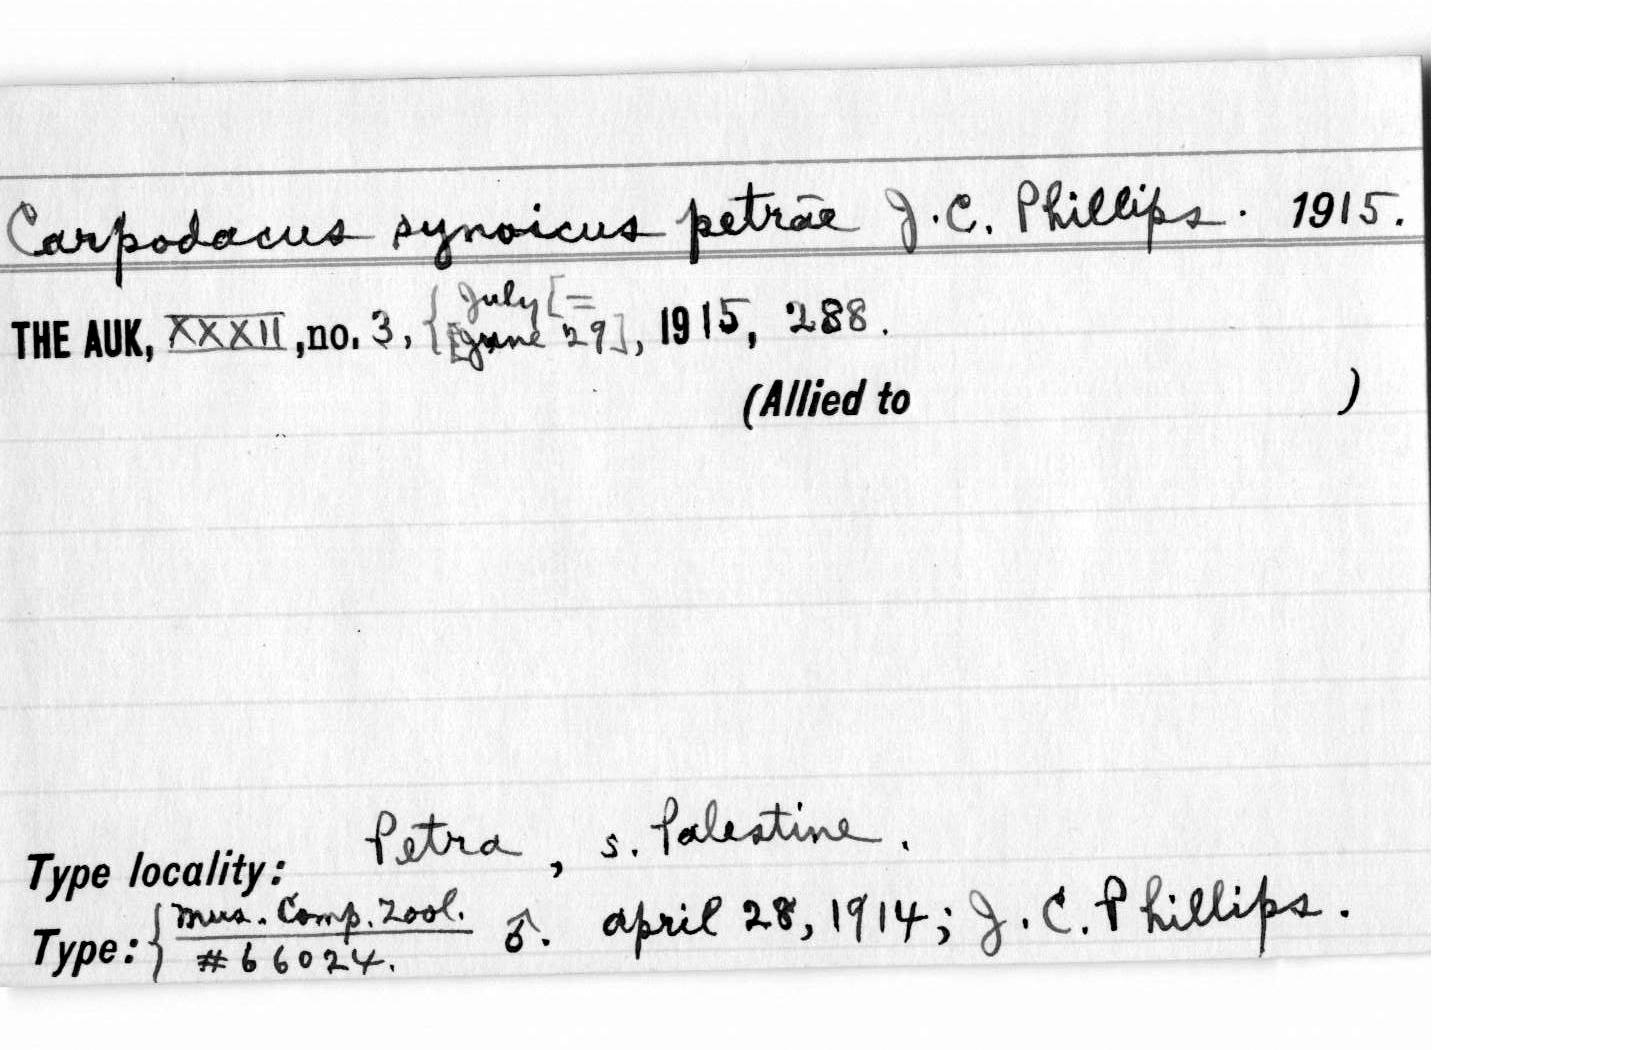 Carpodacus synoicus petrae J. C. Phillips. 1915.
THE AUK, XXXII, no. 3, { July [=
[June 29], 1915, 288.
(Allied to )
Type locality: Petra, s. Palestine.
Type: { Mus. Comp. Zool. ♂. April 28, 1914; J. C. Phillips.
#66024.